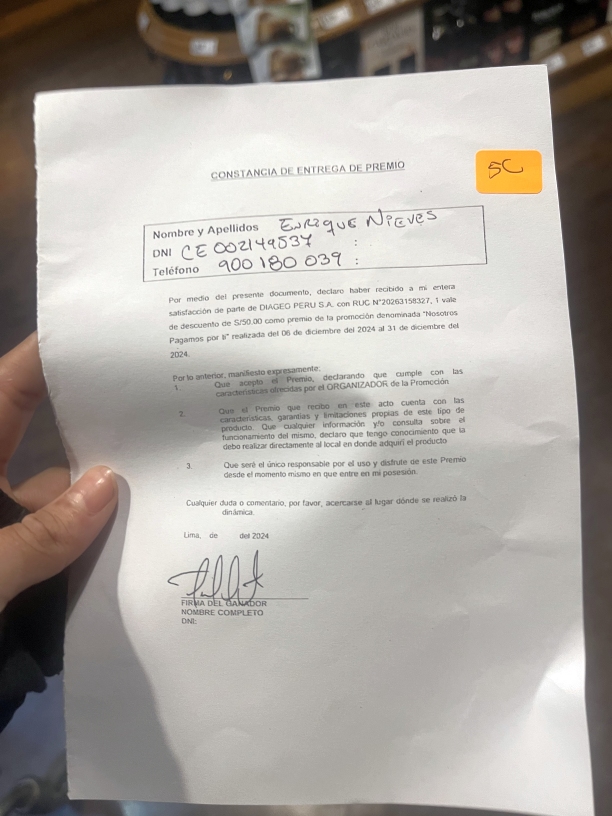 CONSTANCIA DE ENTREGA DE PREMIO
50
Nombre y Apellidos ENRIQUE NIEVES
DNI CE 002149537 :
Teléfono 900 180 039 :
Por medio del presente documento, declaro haber recibido a mi entera
satisfacción de parte de DIAGEO PERU S.A. con RUC N°20263158327, 1 vale
de descuento de S/50.00 como premio de la promoción denominada "Nosotros
Pagamos por ti" realizada del 06 de diciembre del 2024 al 31 de diciembre del
2024.
Por lo anterior, manifiesto expresamente:
1. Que acepto el Premio, declarando que cumple con las
características ofrecidas por el ORGANIZADOR de la Promoción
2. Que el Premio que recibo en este acto cuenta con las
características, garantías y limitaciones propias de este tipo de
producto. Que cualquier información y/o consulta sobre el
funcionamiento del mismo, declaro que tengo conocimiento que la
debo realizar directamente al local en donde adquirí el producto
3. Que seré el único responsable por el uso y disfrute de este Premio
desde el momento mismo en que entre en mi posesión.
Cualquier duda o comentario, por favor, acercarse al lugar dónde se realizó la
dinámica.
Lima, de del 2024
FIRMA DEL GANADOR
NOMBRE COMPLETO
DNI: